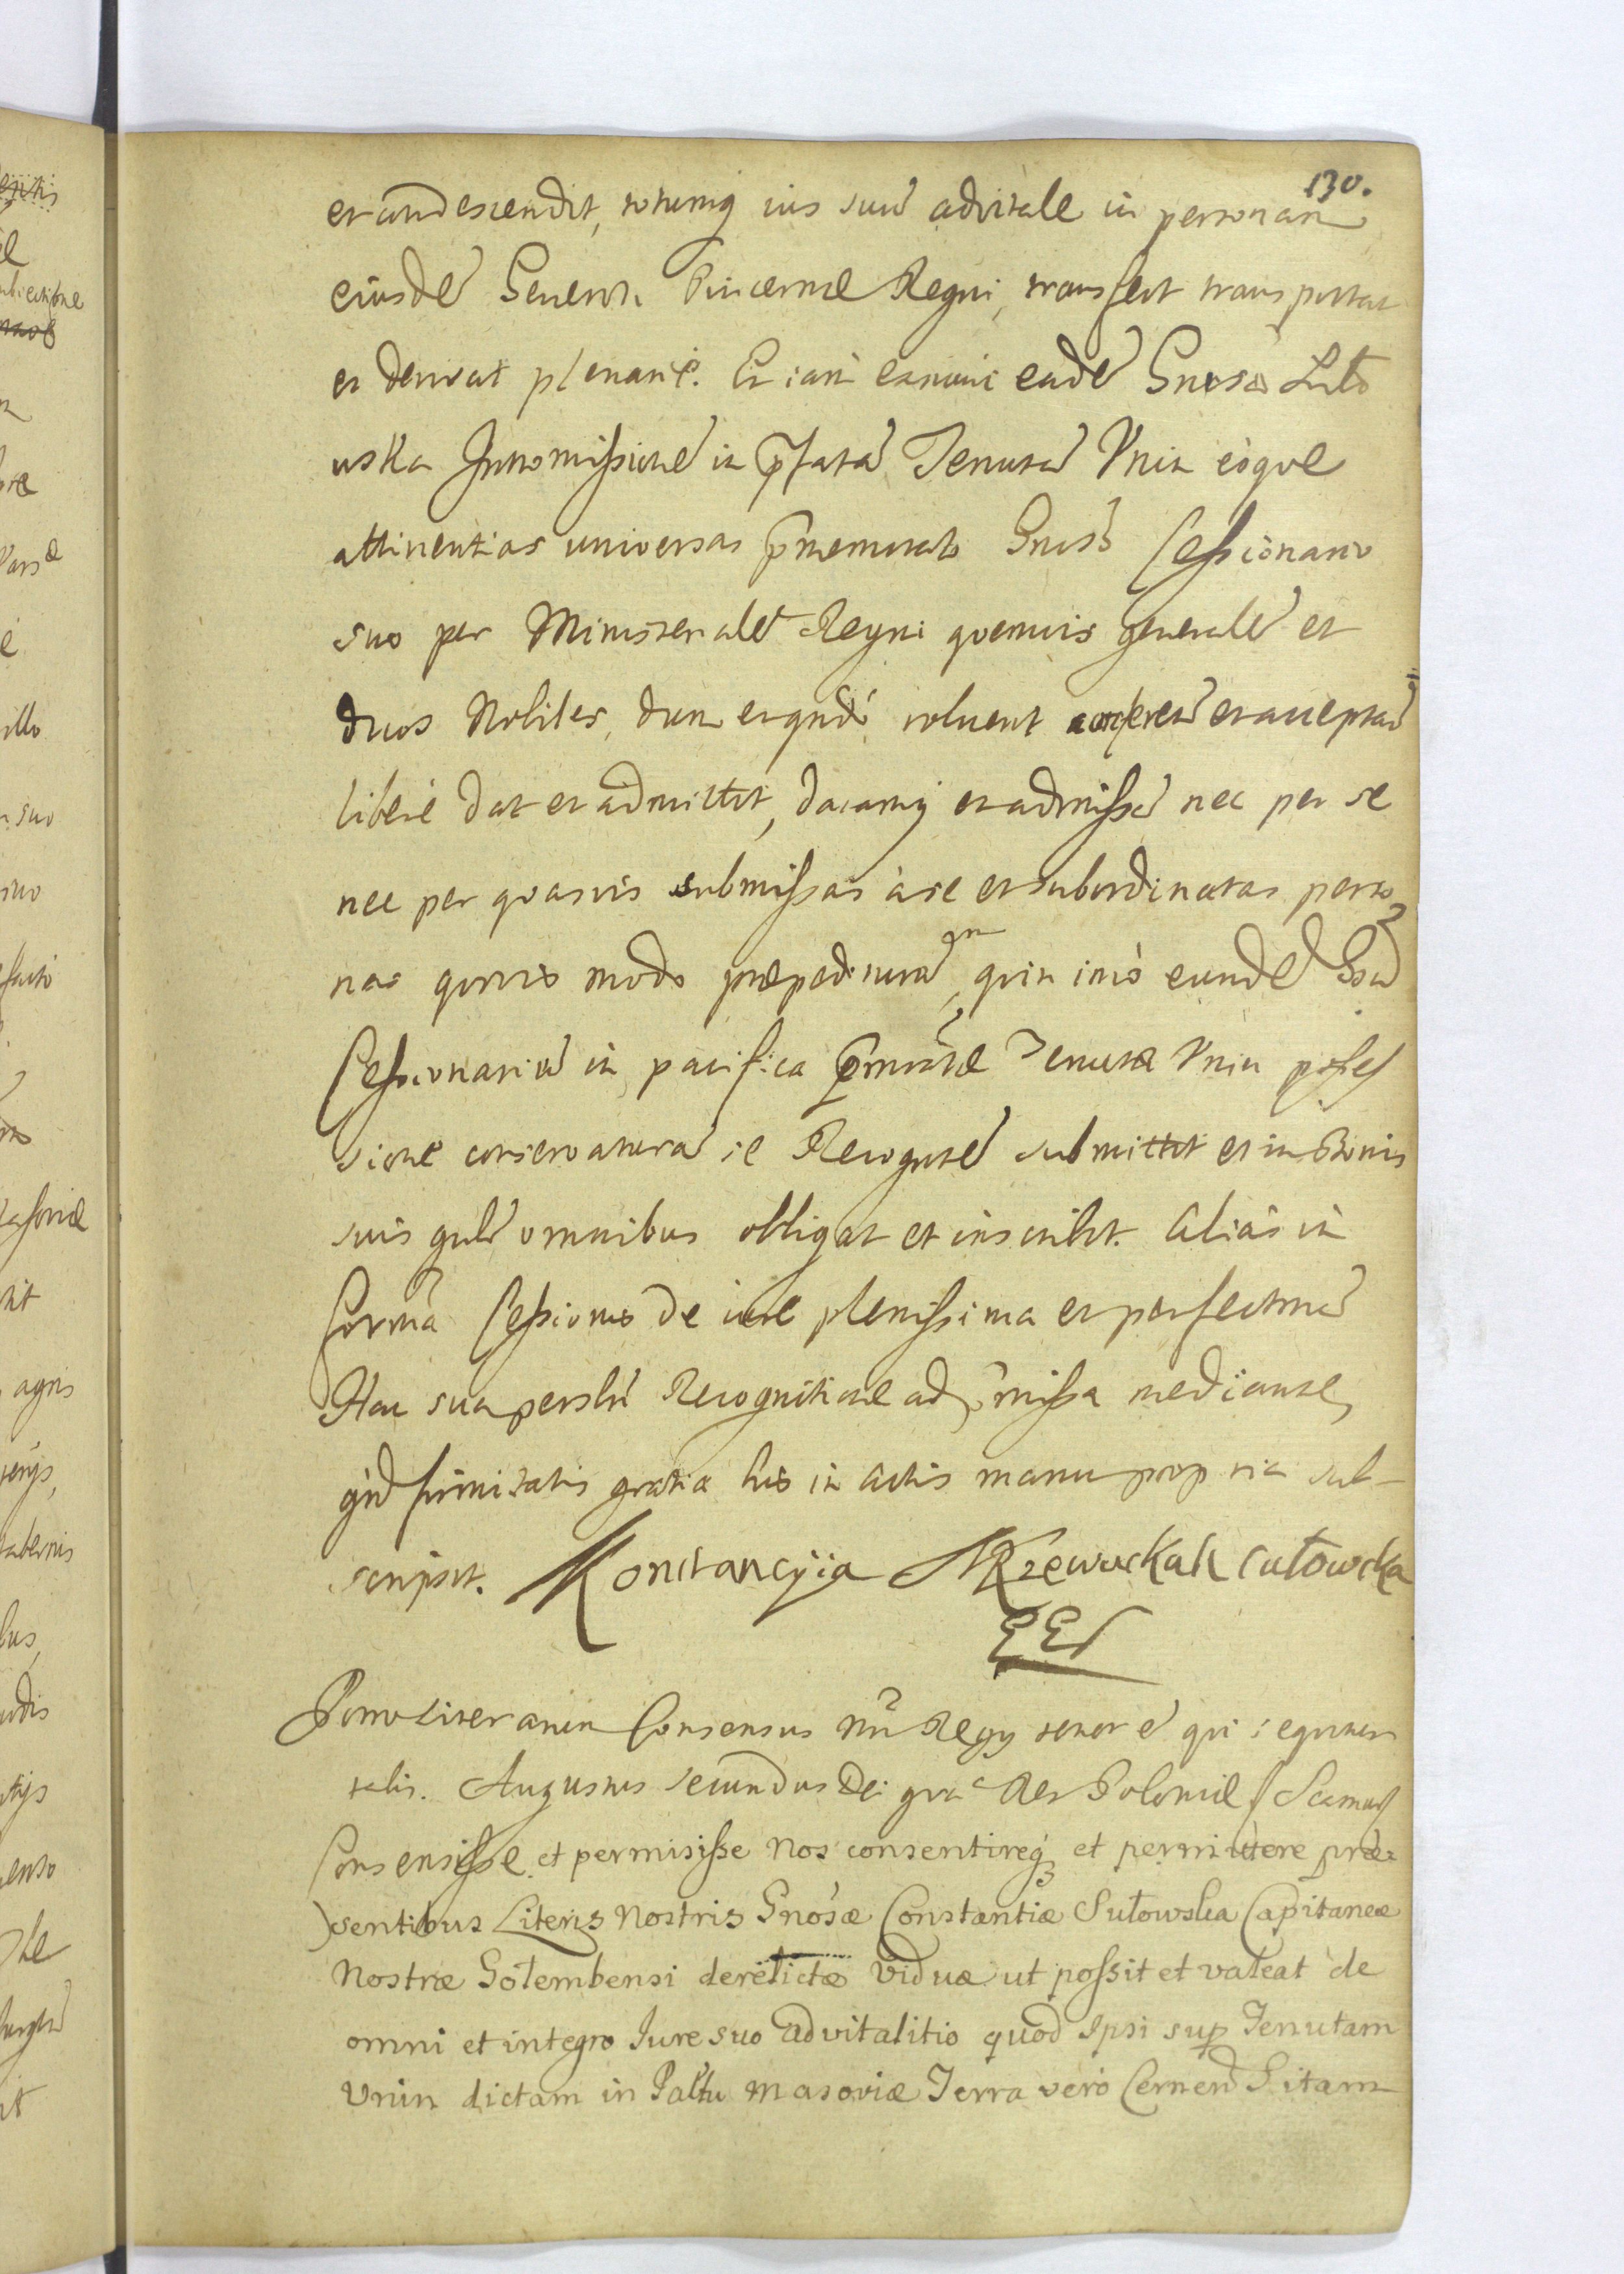 130.
et condescendit, totumq ius suu advitale in personam
eiusde Generosi Pincernæ Regni, transfert transportat
et derivat plenarie. Et iam exnunc eade Gnosa Suło
wska Intromissione in prfata Tenuta Unin eoque
attinentias universas prmemorato Gnoso Cessionario
suo per Ministeriale Regni quemvis generale et
duos Nobiles, dum et qndo voluerit et acceptand
libere dat et admittit, datamq et admissa nec per se
nec per quasvis submissas à se et subordinatas perso
nas quovis modo præpeditura, quin imò eunde Gsu
Cessionariu in pacifica prmissæ Tenutæ Unin posses
sione conservatura se Recognitæ submittit et in Bonis
suis gnlr omnibus obligat et inscribit. Alias in
forma Cessionis de iure plenissima et perfectma
Hac sua persli Recognitione ad prmissa mediante,
qud firmitatis gratia hìs in Actis manu propria sub-
scripsit. Konstancyia Rzewuska Sułowska
Porro Literarum Consensus nri Regy tenor e qui sequitur
talis. Augustus Secundus Dei gra Rex Poloniæ
Consensisse et permisisse Nos consentireq et permittere præ-
sentibus Literis Nostris Gnosæ Constantiæ Sułowska Capitaneæ
Nostræ Gołembensi derelictæ Viduæ ut possit et valeat de
omni et integro Jure suo advitalitio quod Ipsi sup Tenutam
Unin dictam in Paltu Masoviæ Terra verò Cernen Sitam